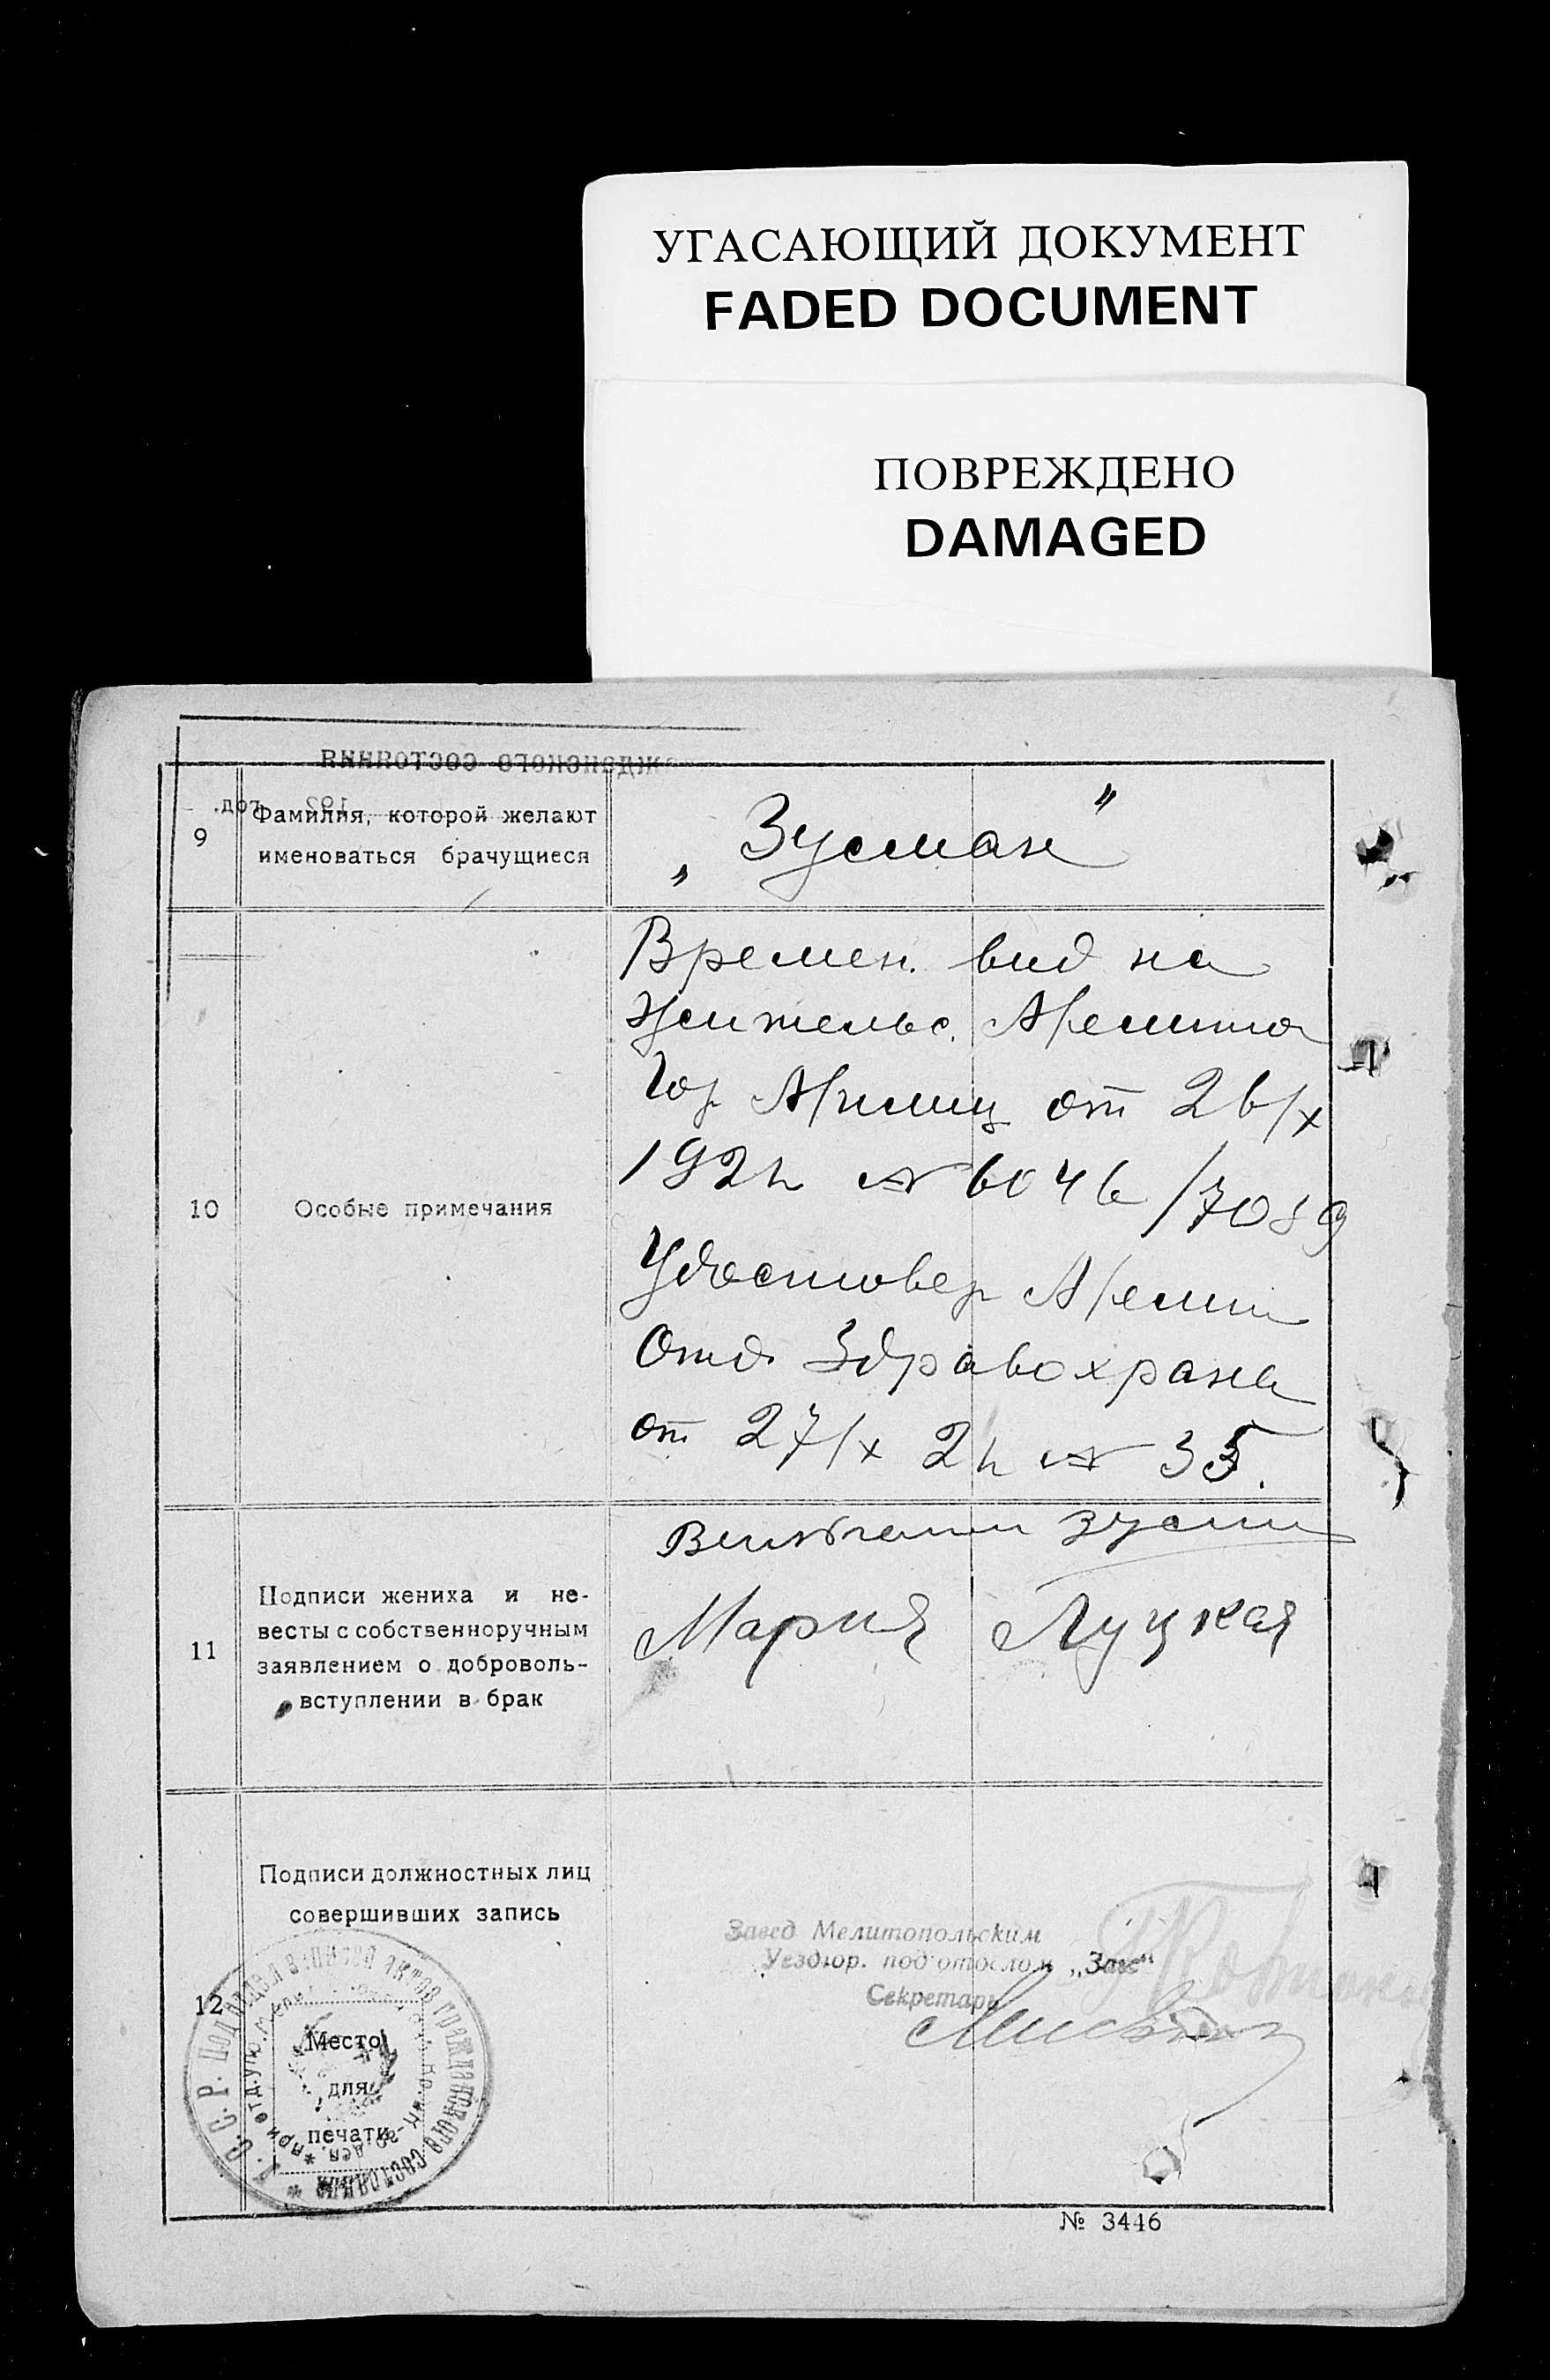 УГАСАЮЩИЙ ДОКУМЕНТ
FADED DOCUMENT
ПОВРЕЖДЕНО
DAMAGED
9
Фамилия, которой желают
именоваться брачущиеся
„Зусман"
10
Особые примечания
Времен. вид на
жительс.
Гор от 26/х
192 № 6046/7089
Удостовер
Отд. Здравохране
от 27/х 2 № 35.
11
Подписи жениха и не-
весты с собственноручным
заявлением о доброволь-
вступлении в брак
Мария Луцкая
12
Подписи должностных лиц
совершивших запись
Завед Мелитопольским
Уездюр. подотделом „Загс"
Секретарь
Место
для
печати
С. Р. Подотдел записей актов гражданского состояния
№ 3446